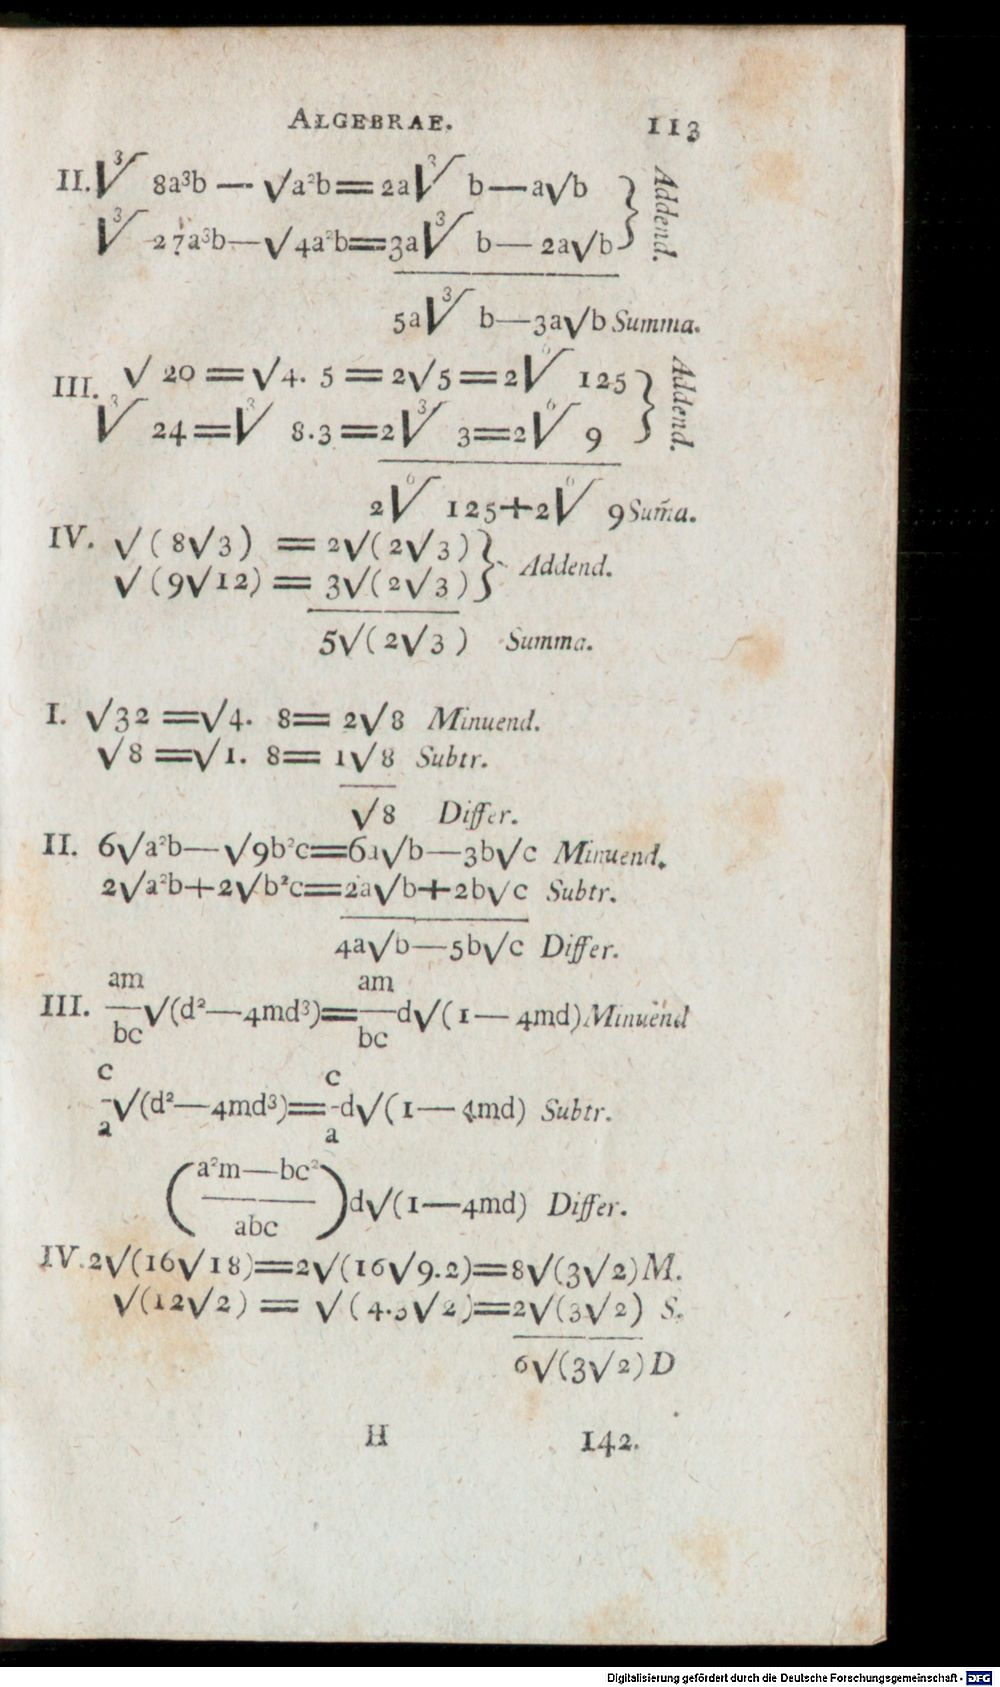 ALGEBRAE. 113
II. ∛ 8a³b — √a²b = 2a∛ b — a√b
∛ 27a³b — √4a²b = 3a∛ b — 2a√b } Addend.
5a∛ b — 3a√b Summa.
III. √ 20 = √4. 5 = 2√5 = 2⁶√ 125
∛ 24 = ∛ 8.3 = 2∛ 3 = 2⁶√ 9 } Addend.
2⁶√ 125 + 2⁶√ 9 Sum̃a.
IV. √(8√3) = 2√(2√3)
√(9√12) = 3√(2√3) } Addend.
5√(2√3) Summa.
I. √32 = √4. 8 = 2√8 Minuend.
√8 = √1. 8 = 1√8 Subtr.
√8 Differ.
II. 6√a²b — √9b²c = 6a√b — 3b√c Minuend.
2√a²b + 2√b²c = 2a√b + 2b√c Subtr.
4a√b — 5b√c Differ.
III. am/bc √(d² — 4md³) = am/bc d√(1 — 4md) Minuend
c/a √(d² — 4md³) = c/a d√(1 — 4md) Subtr.
(a²m — bc²/abc) d√(1 — 4md) Differ.
IV. 2√(16√18) = 2√(16√9.2) = 8√(3√2) M.
√(12√2) = √(4.3√2) = 2√(3√2) S.
6√(3√2) D
H 142.
Digitalisierung gefördert durch die Deutsche Forschungsgemeinschaft - DFG